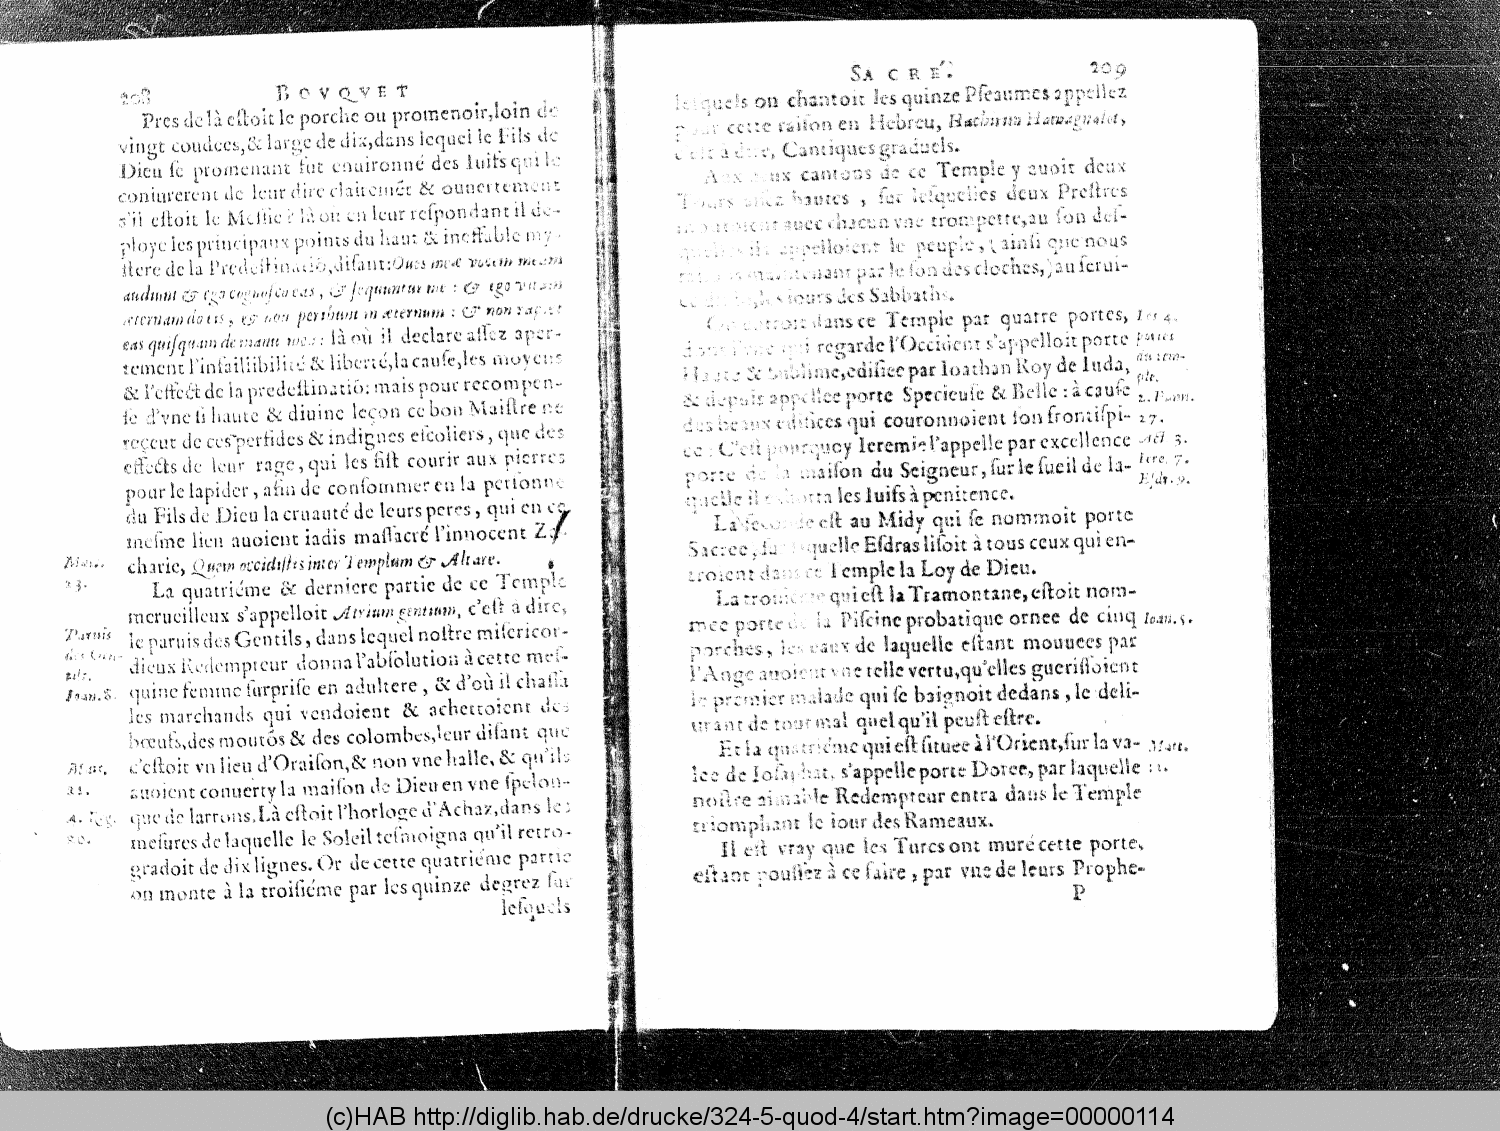 208 BOVQVET
Pres de là eſtoit le porche ou promenoir, loin de
vingt coudees, & large de dix, dans lequel le Fils de
Dieu ſe promenant fut enuironné des Iuifs qui le
coniurerent de leur dire clairemẽt & ouuertement
s'il eſtoit le Meſſie: là où en leur reſpondant il de-
ploye les principaux points du haut & ineffable my-
ſtere de la Predeſtinatiõ, diſant: Oues meæ vocem meam
audiunt & ego cognoſco eas, & ſequuntur me: & ego vitam
æternam do eis, & non peribunt in æternum: & non rapiet
eas quiſquam de manu mea: là où il declare aſſez aper-
tement l'infaillibilité & liberté, la cauſe, les moyens
& l'effect de la predeſtinatiõ: mais pour recompen-
ſe d'vne ſi haute & diuine leçon ce bon Maiſtre ne
reçeut de ces perfides & indignes eſcoliers, que des
effects de leur rage, qui les fiſt courir aux pierres
pour le lapider, afin de conſommer en la perſonne
du Fils de Dieu la cruauté de leurs peres, qui en ce
meſme lieu auoient iadis maſſacré l'innocent Za-
charie, Quem occidiſtis inter Templum & Altare.
La quatriéme & derniere partie de ce Temple
merueilleux s'appelloit Atrium gentium, c'eſt à dire,
le paruis des Gentils, dans lequel noſtre miſericor-
dieux Redempteur donna l'abſolution à cette meſ-
quine femme ſurpriſe en adultere, & d'où il chaſſa
les marchands qui vendoient & achettoient des
bœufs, des moutõs & des colombes, leur diſant que
c'eſtoit vn lieu d'Oraiſon, & non vne halle, & qu'ils
auoient conuerty la maiſon de Dieu en vne ſpelon-
que de larrons. Là eſtoit l'horloge d'Achaz, dans les
meſures de laquelle le Soleil teſmoigna qu'il retro-
gradoit de dix lignes. Or de cette quatriéme partie
on monte à la troiſiéme par les quinze degrez ſur
leſquels
23.
Paruis
tils.
Ioan. 8.
Matt.
21.
4. Reg.
20.
SACRÉ. 209
leſquels on chantoit les quinze Pſeaumes appellez
pour cette raiſon en Hebreu,
c'eſt à dire, Cantiques graduels.
Aux deux cantons de ce Temple y auoit deux
Tours aſſez hautes, ſur leſquelles deux Preſtres
montoient auec chacun vne trompette, au ſon deſ-
quelles ils appelloient le peuple, (ainſi que nous
maintenant par le ſon des cloches,) au ſerui-
ce les iours des Sabbaths.
On entroit dans ce Temple par quatre portes,
dont l'vne qui regarde l'Occident s'appelloit porte
Haute & Sublime, edifiee par Ioathan Roy de Iuda,
& depuis appellee porte Specieuſe & Belle: à cauſe
des beaux edifices qui couronnoient ſon frontiſpi-
ce: C'eſt pourquoy Ieremie l'appelle par excellence
porte de la maiſon du Seigneur, ſur le ſueil de la-
quelle il exhorta les Iuifs à penitence.
La ſeconde eſt au Midy qui ſe nommoit porte
Sacree, ſur laquelle Eſdras liſoit à tous ceux qui en-
troient dans ce Temple la Loy de Dieu.
La troiſieme qui eſt la Tramontane, eſtoit nom-
mee porte de la Piſcine probatique ornee de cinq
porches, les eaux de laquelle eſtant mouuees par
l'Ange auoient vne telle vertu, qu'elles gueriſſoient
le premier malade qui ſe baignoit dedans, le deli-
urant de tout mal quel qu'il peuſt eſtre.
Et la quatriéme qui eſt ſituee à l'Orient, ſur la va-
lee de Ioſaphat, s'appelle porte Doree, par laquelle
noſtre aimable Redempteur entra dans le Temple
triomphant le iour des Rameaux.
Il eſt vray que les Turcs ont muré cette porte,
eſtant pouſſez à ce faire, par vne de leurs Prophe-
P
Les 4.
portes
du tem-
ple.
2. Paral.
27.
Act 3.
Iere. 7.
Eſdr. 9.
Ioan. 5.
Matt.
21.
(c)HAB http://diglib.hab.de/drucke/324-5-quod-4/start.htm?image=00000114